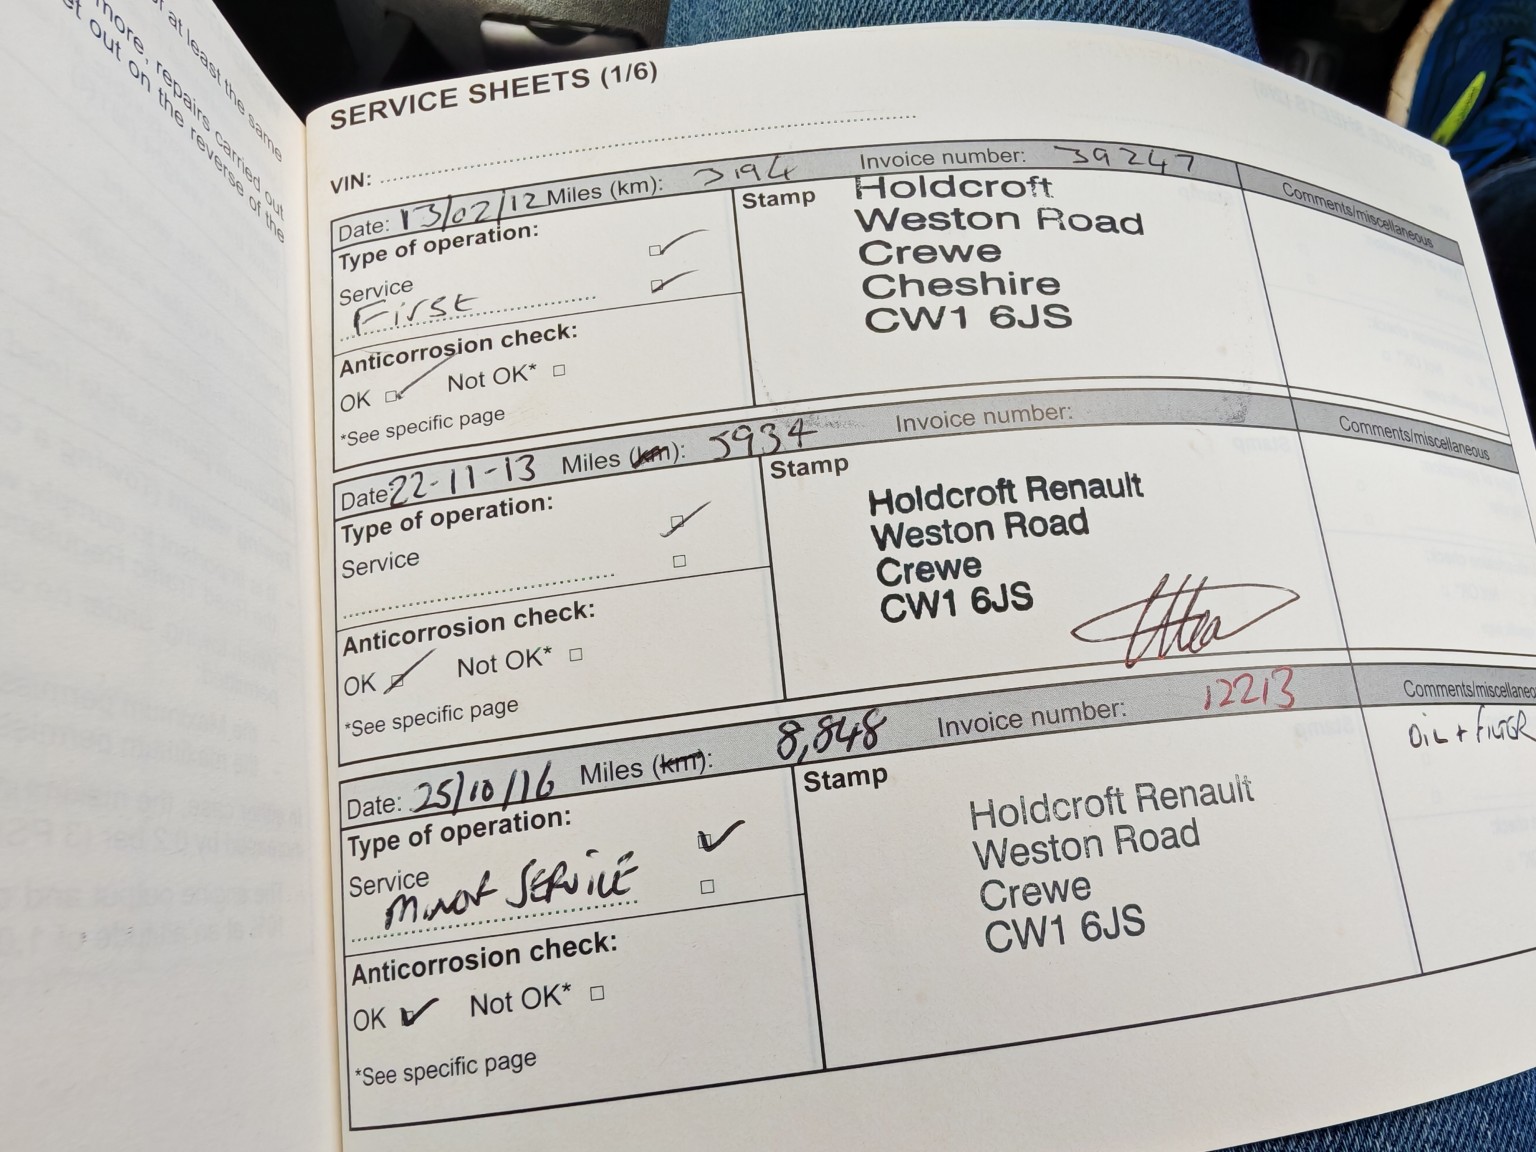 at least the same
more, repairs carried out
out on the reverse of the
SERVICE SHEETS (1/6)
VIN:
Date: 13/02/12 Miles (km): 3194 Invoice number: 39247
Comments/miscellaneous
Type of operation:
Service
First
Anticorrosion check:
OK Not OK*
*See specific page
Stamp
Holdcroft
Weston Road
Crewe
Cheshire
CW1 6JS
Date: 22-11-13 Miles (km): 5934 Invoice number:
Comments/miscellaneous
Type of operation:
Service
Anticorrosion check:
OK Not OK*
*See specific page
Stamp
Holdcroft Renault
Weston Road
Crewe
CW1 6JS
Date: 25/10/16 Miles (km): 8,848 Invoice number: 12213
Comments/miscellaneo
Type of operation:
Service
MINOR SERVICE
Anticorrosion check:
OK Not OK*
*See specific page
Stamp
Holdcroft Renault
Weston Road
Crewe
CW1 6JS
OIL + FILTER